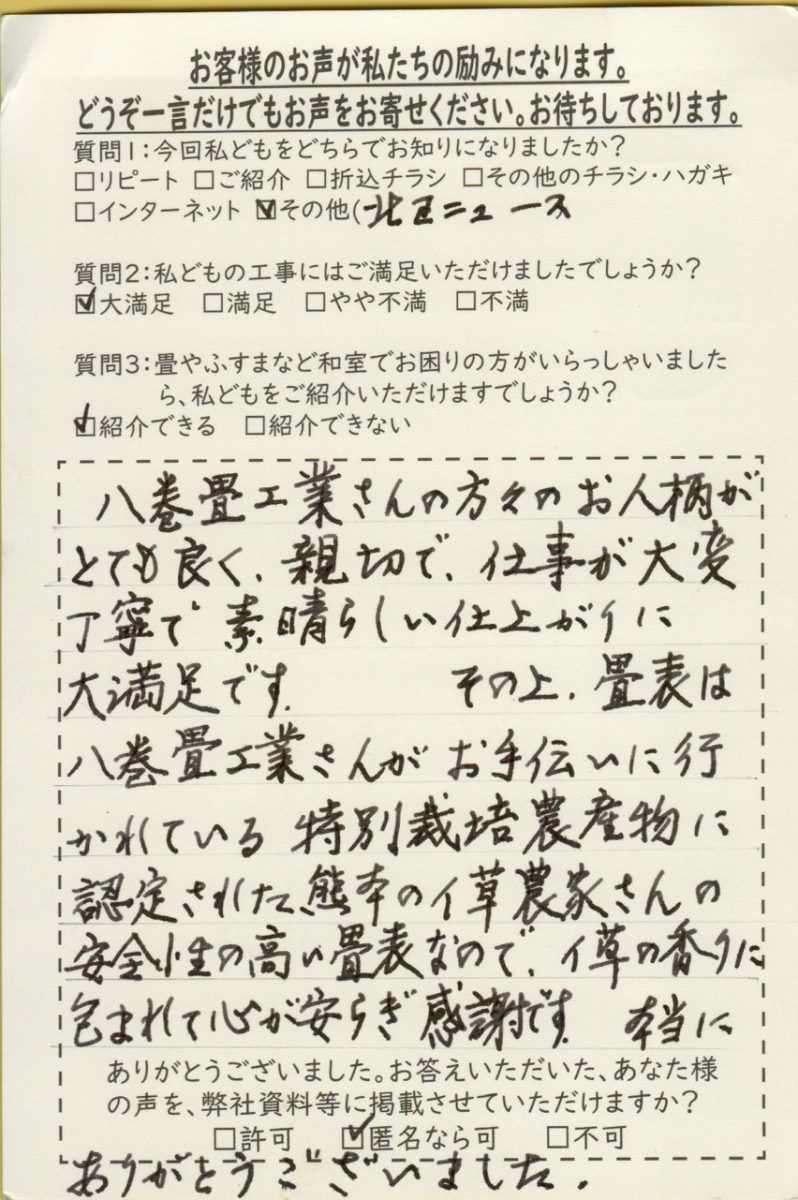 お客様のお声が私たちの励みになります。
どうぞ一言だけでもお声をお寄せください。お待ちしております。
質問1:今回私どもをどちらでお知りになりましたか?
□リピート □ご紹介 □折込チラシ □その他のチラシ・ハガキ
□インターネット ☑その他(北区ニュース
質問2:私どもの工事にはご満足いただけましたでしょうか?
☑大満足 □満足 □やや不満 □不満
質問3:畳やふすまなど和室でお困りの方がいらっしゃいました
ら、私どもをご紹介いただけますでしょうか?
☑紹介できる □紹介できない
八巻畳工業さんの方々のお人柄が
とても良く、親切で、仕事が大変
丁寧で素晴らしい仕上がりに
大満足です。 その上、畳表は
八巻畳工業さんがお手伝いに行
かれている特別栽培農産物に
認定された熊本のイ草農家さんの
安全性の高い畳表なので、イ草の香りに
包まれて心が安らぎ感謝です。 本当に
ありがとうございました。お答えいただいた、あなた様
の声を、弊社資料等に掲載させていただけますか?
□許可 ☑匿名なら可 □不可
ありがとうございました。